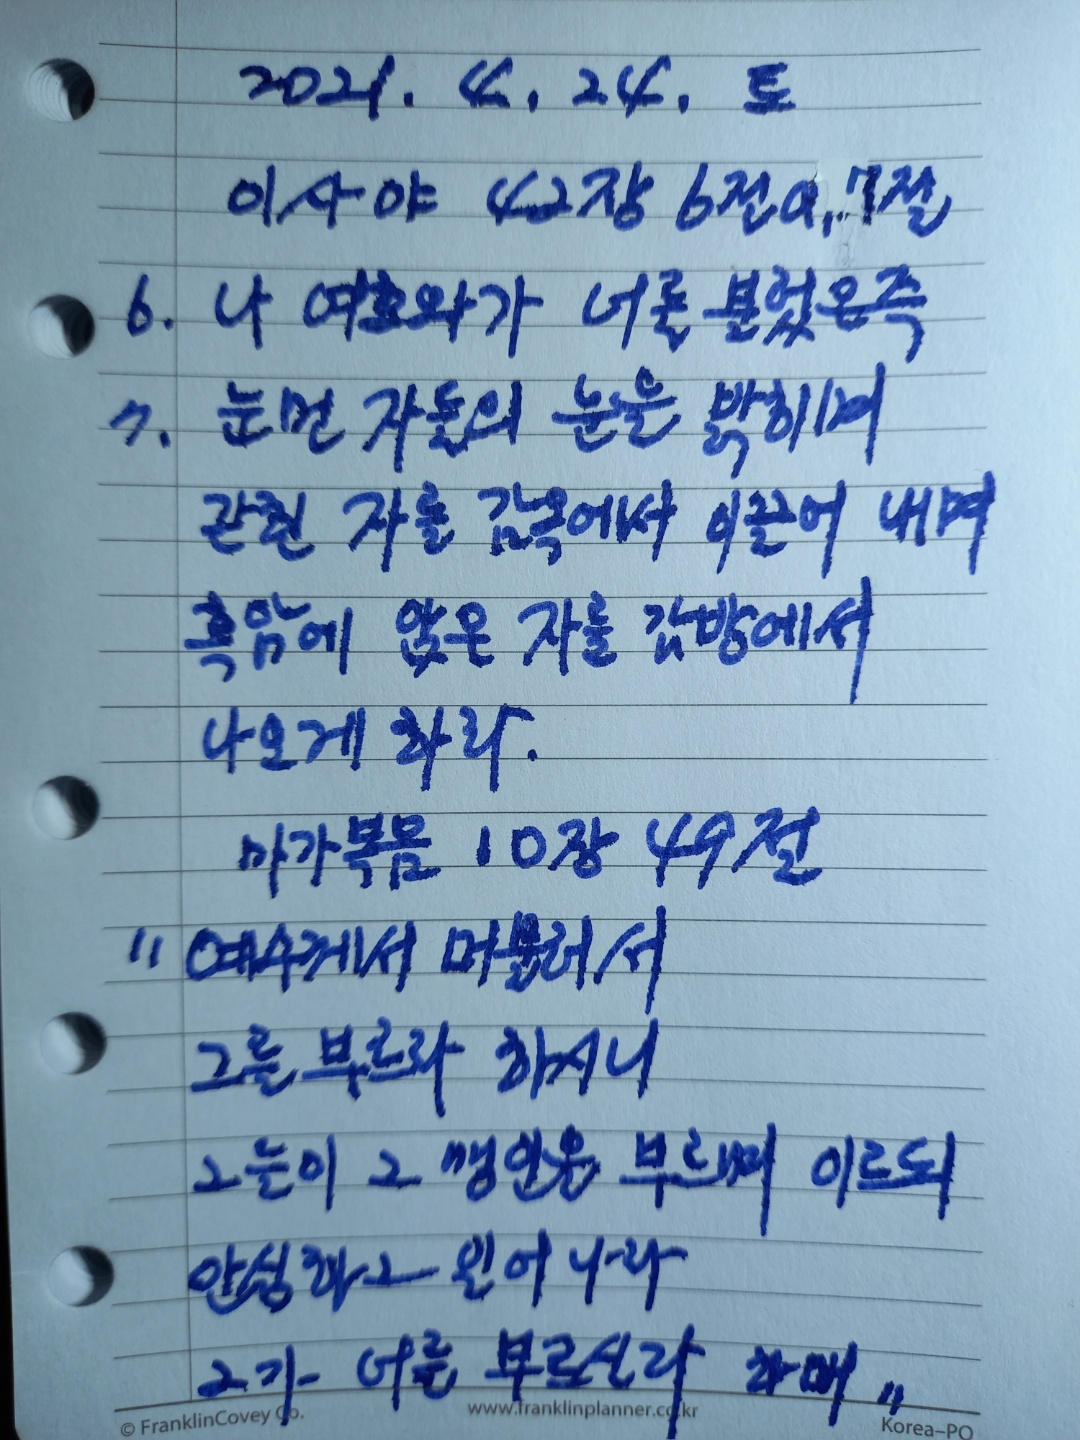 2021. 4. 24. 토
이사야 42장 6절a, 7절
6. 나 여호와가 너를 불렀은즉
7. 눈먼 자들의 눈을 밝히며
갇힌 자를 감옥에서 이끌어 내며
흑암에 앉은 자를 감방에서
나오게 하라.
마가복음 10장 49절
" 예수께서 머물러 서
그를 부르라 하시니
그들이 그 맹인을 부르며 이르되
안심하고 일어나라
그가 너를 부르신다 하매 "
© FranklinCovey Co. www.franklinplanner.co.kr Korea-PO